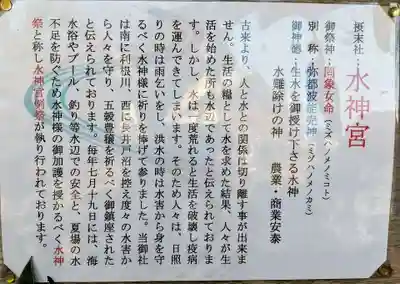 摂末社：水神宮
御祭神：罔象女命（ミズハノメノミコト）
別　称：弥都波能売神（ミヅハノメノカミ）
御神徳：生水を御授け下さる水神
水難除けの神　農業・商業安泰
古来より、人と水との関係は切り離す事が出来ま
せん。生活の糧として水を求めた結果、人々が生
活を始めた所も水辺であったと伝えられておりま
す。しかし、水は一度荒れると生活を破壊し疫病
を運んできてしまいます。そのため人々は、日照
りの時は雨乞いをし、洪水の時は水害から身を守
るべく水神様に祈りを捧げて参りました。当御社
は南に利根川、西に長井戸沼を控え度々の水害か
ら人々を守り、五穀豊穣を祈るべく御鎮座された
と伝えられております。毎年七月十九日には、海
水浴やプール、釣り等水辺での安全と、夏場の水
不足を防ぐため水神様の御加護を授かるべく水神
祭と称し水神宮例祭が執り行われております。